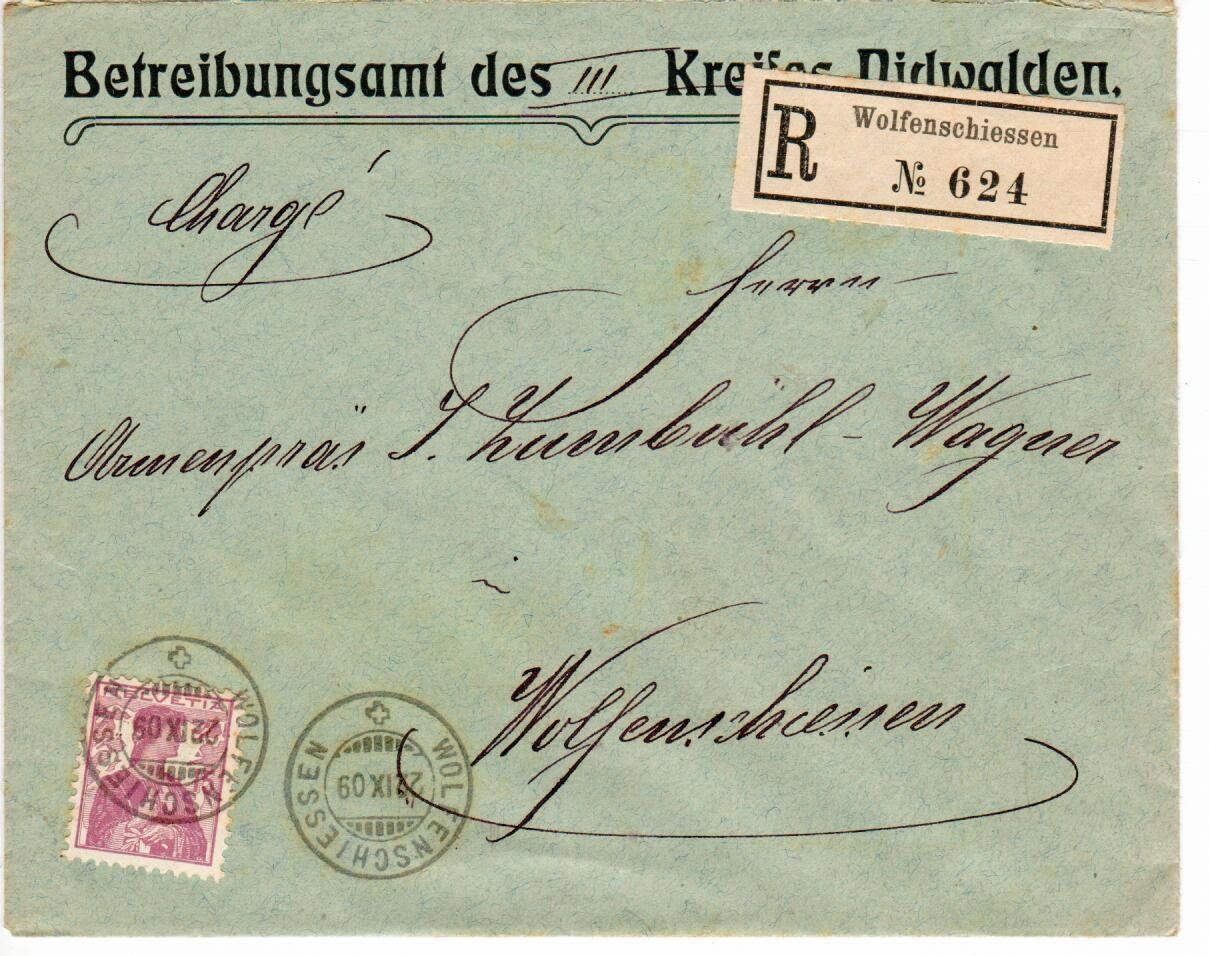 Betreibungsamt des III Kreises Nidwalden.
R Wolfenschiessen
№ 624
Chargé
Herrn
Armenpräs J. Zumbühl-Wagner
in
Wolfenschiessen
HELVETIA
WOLFENSCHIESSEN
22 IX 09
WOLFENSCHIESSEN
22 IX 09